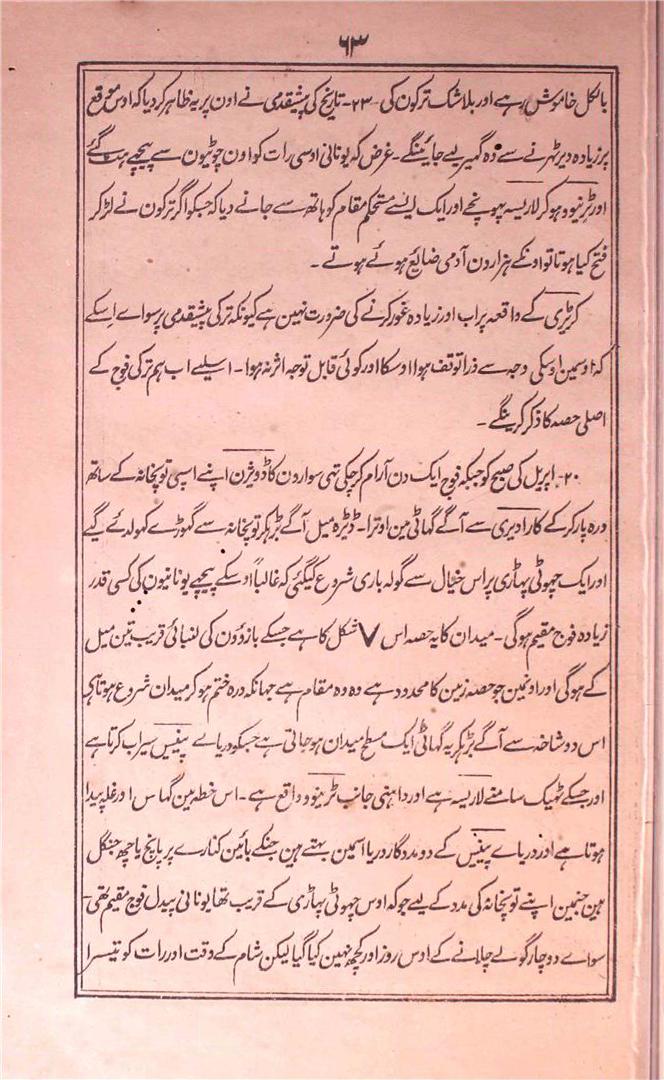 ۶۳
بالکل خاموش رہے اور بلاشک ترکون کی ۲۳- تاریخ کی پیشقدمی نے اون پر یہ ظاہر کر دیا کہ اوس موقع
پر زیادہ دیر ٹہرنے سے وہ گھیر لیے جائینگے۔ غرض کہ یونانی اوسی رات کو اون چوٹیون سے پیچھے ہٹ گئے
اور ٹرنیوو ہو کر لاریسہ پہونچے اور ایک ایسے مستحکم مقام کو ہاتھ سے جانے دیا کہ جسکو اگر ترکون نے لڑ کر
فتح کیا ہوتا تو اونکے ہزارون آدمی ضایع ہوئے ہوتے۔
کریٹری کے واقعہ پر اب اور زیادہ غور کرنے کی ضرورت نہین ہے کیونکہ ترکی پیشقدمی پر سواے اسکے
کہ اوسمین اوسکی وجہ سے ذرا توقف ہوا اوسکا اور کوئی قابل توجہ اثر نہ ہوا۔ اسلیے اب ہم ترکی فوج کے
اصلی حصہ کا ذکر کرینگے۔
۲۰- اپریل کی صبح کو جبکہ فوج ایک دن آرام کر چکی تہی سوارون کا ڈویژن اپنے اسپی توپخانہ کے ساتھ
درہ پار کر کے کارادیری سے آگے گھاٹی مین اوترا۔ ڈیڑہ میل آگے بڑہکر توپخانہ سے گھوڑے کھولدئے گیے
اور ایک چھوٹی پہاڑی پر اس خیال سے گولہ باری شروع کیگئی کہ غالباً اوسکے پیچھے یونانیون کی کسی قدر
زیادہ فوج مقیم ہوگی۔ میدان کا یہ حصہ اس ۷ شکل کا ہے جسکے بازوؤن کی لنبائی قریب تین میل
کے ہوگی اور اونمین جو حصہ زمین کا محدود ہے وہ وہ مقام ہے جہانکہ درہ ختم ہو کر میدان شروع ہوتا ہی
اس دوشاخہ سے آگے بڑہکر یہ گھاٹی ایک مسطح میدان ہو جاتی ہے جسکو دریاے پینیس سیراب کرتا ہے
اور جسکے ٹھیک سامنے لاریسہ ہے اور داہنی جانب ٹرنیوو واقع ہے۔ اس خطہ مین گھاس اور غلہ پیدا
ہوتا ہے اور دریاے پینیس کے دو مددگار دریا اسمین بہتے ہین جنکے بائین کنارے پر پانچ یا چھ جنگل
ہین جنمین اپنے توپخانہ کی مدد کے لیے جو کہ اوس چھوٹی پہاڑی کے قریب تھا یونانی پیدل فوج مقیم تھی۔
سواے دو چار گولے چلانے کے اوس روز اور کچھ نہین کیا گیا لیکن شام کے وقت اور رات کو تیسرا